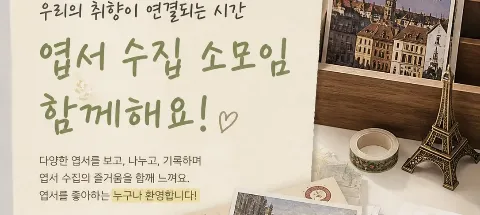 우리의 취향이 연결되는 시간
엽서 수집 소모임
함께해요!
다양한 엽서를 보고, 나누고, 기록하며
엽서 수집의 즐거움을 함께 느껴요.
엽서를 좋아하는 누구나 환영합니다!